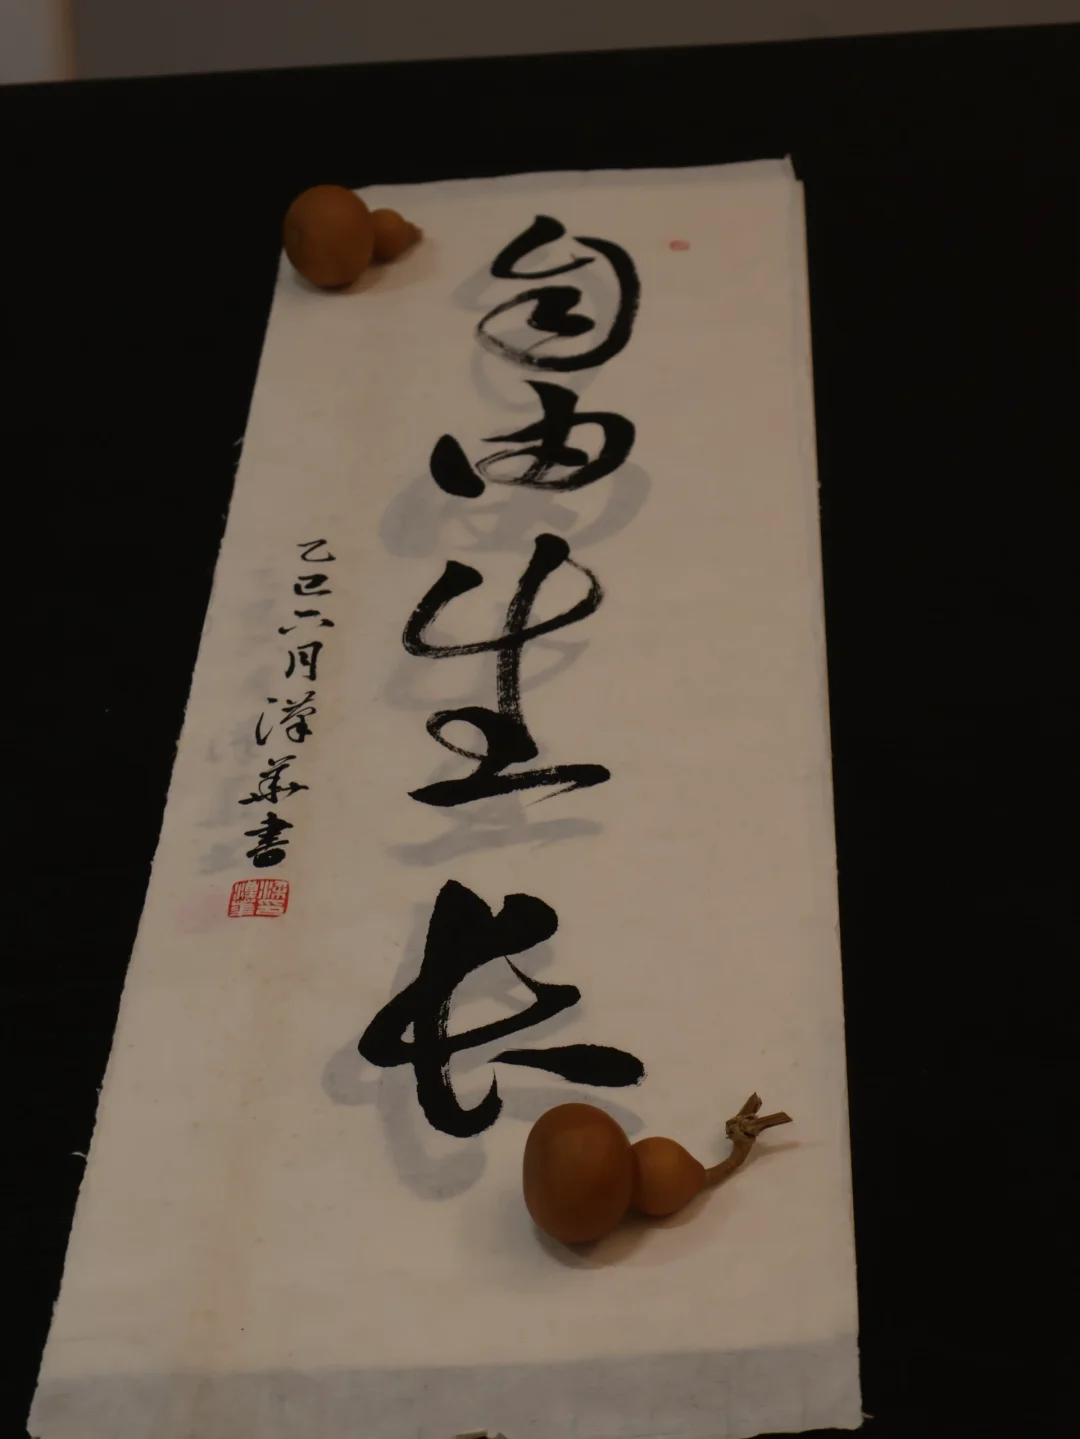 自由生长
乙巳六月漢華書